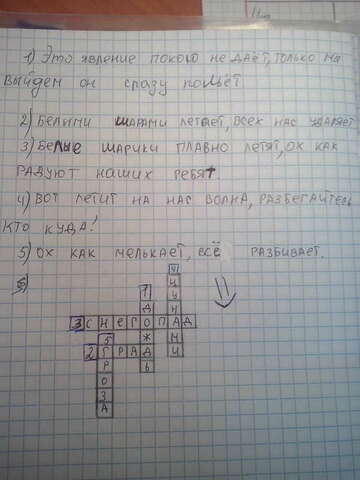 1) Это явление покою не даёт, только мы
выйдем он сразу польёт
2) Белыми шарами летает, всех нас ударяет
3) Белые шарики плавно летят, ох как
радуют наших ребят
4) Вот летит на нас волна, разбегайтесь
кто куда!
5) Ох как мелькает, всё разбивает.
4
Ц
1 У
Д Н
3 С Н Е Г О П А Д
5 Ж М
2 Г Р А Д И
Р Ь
О
З
А